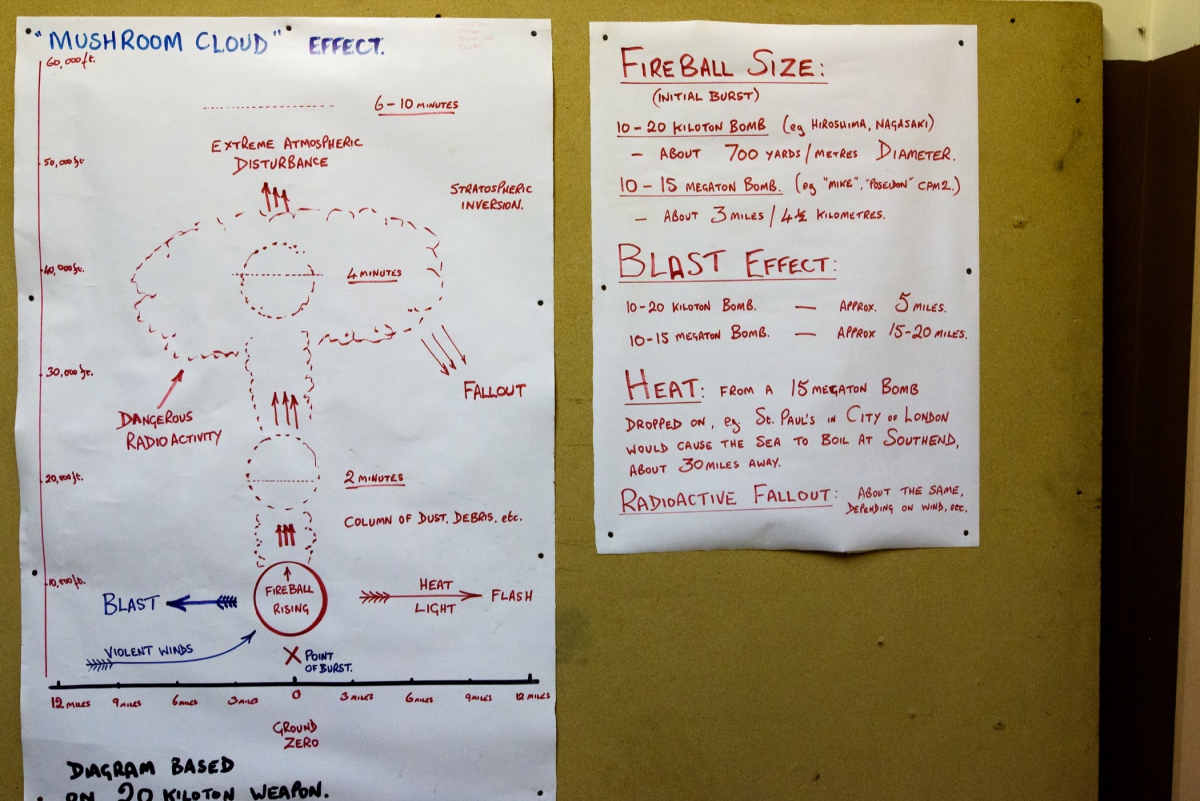 "MUSHROOM CLOUD" EFFECT.
60,000 ft.
6-10 MINUTES
EXTREME ATMOSPHERIC
DISTURBANCE
50,000 ft
STRATOSPHERIC
INVERSION.
40,000 ft.
4 MINUTES
30,000 ft.
FALLOUT
DANGEROUS
RADIOACTIVITY
20,000 ft.
2 MINUTES
COLUMN OF DUST, DEBRIS, etc.
10,000 ft.
FIREBALL
RISING
BLAST
HEAT
LIGHT
FLASH
VIOLENT WINDS
POINT
OF BURST.
12 MILES 9 MILES 6 MILES 3 MILES 0 3 MILES 6 MILES 9 MILES 12 MILES
GROUND
ZERO
DIAGRAM BASED
ON 20 KILOTON WEAPON.
FIREBALL SIZE:
(INITIAL BURST)
10-20 KILOTON BOMB (eg HIROSHIMA, NAGASAKI)
- ABOUT 700 YARDS/METRES DIAMETER.
10-15 MEGATON BOMB. (eg "MIKE", "POSEIDON" CPM2.)
- ABOUT 3 MILES / 4½ KILOMETRES.
BLAST EFFECT:
10-20 KILOTON BOMB. - APPROX. 5 MILES.
10-15 MEGATON BOMB. - APPROX 15-20 MILES.
HEAT: FROM A 15 MEGATON BOMB
DROPPED ON, eg. ST. PAUL'S IN CITY OF LONDON
WOULD CAUSE THE SEA TO BOIL AT SOUTHEND,
ABOUT 30 MILES AWAY.
RADIOACTIVE FALLOUT: ABOUT THE SAME,
DEPENDING ON WIND, etc.